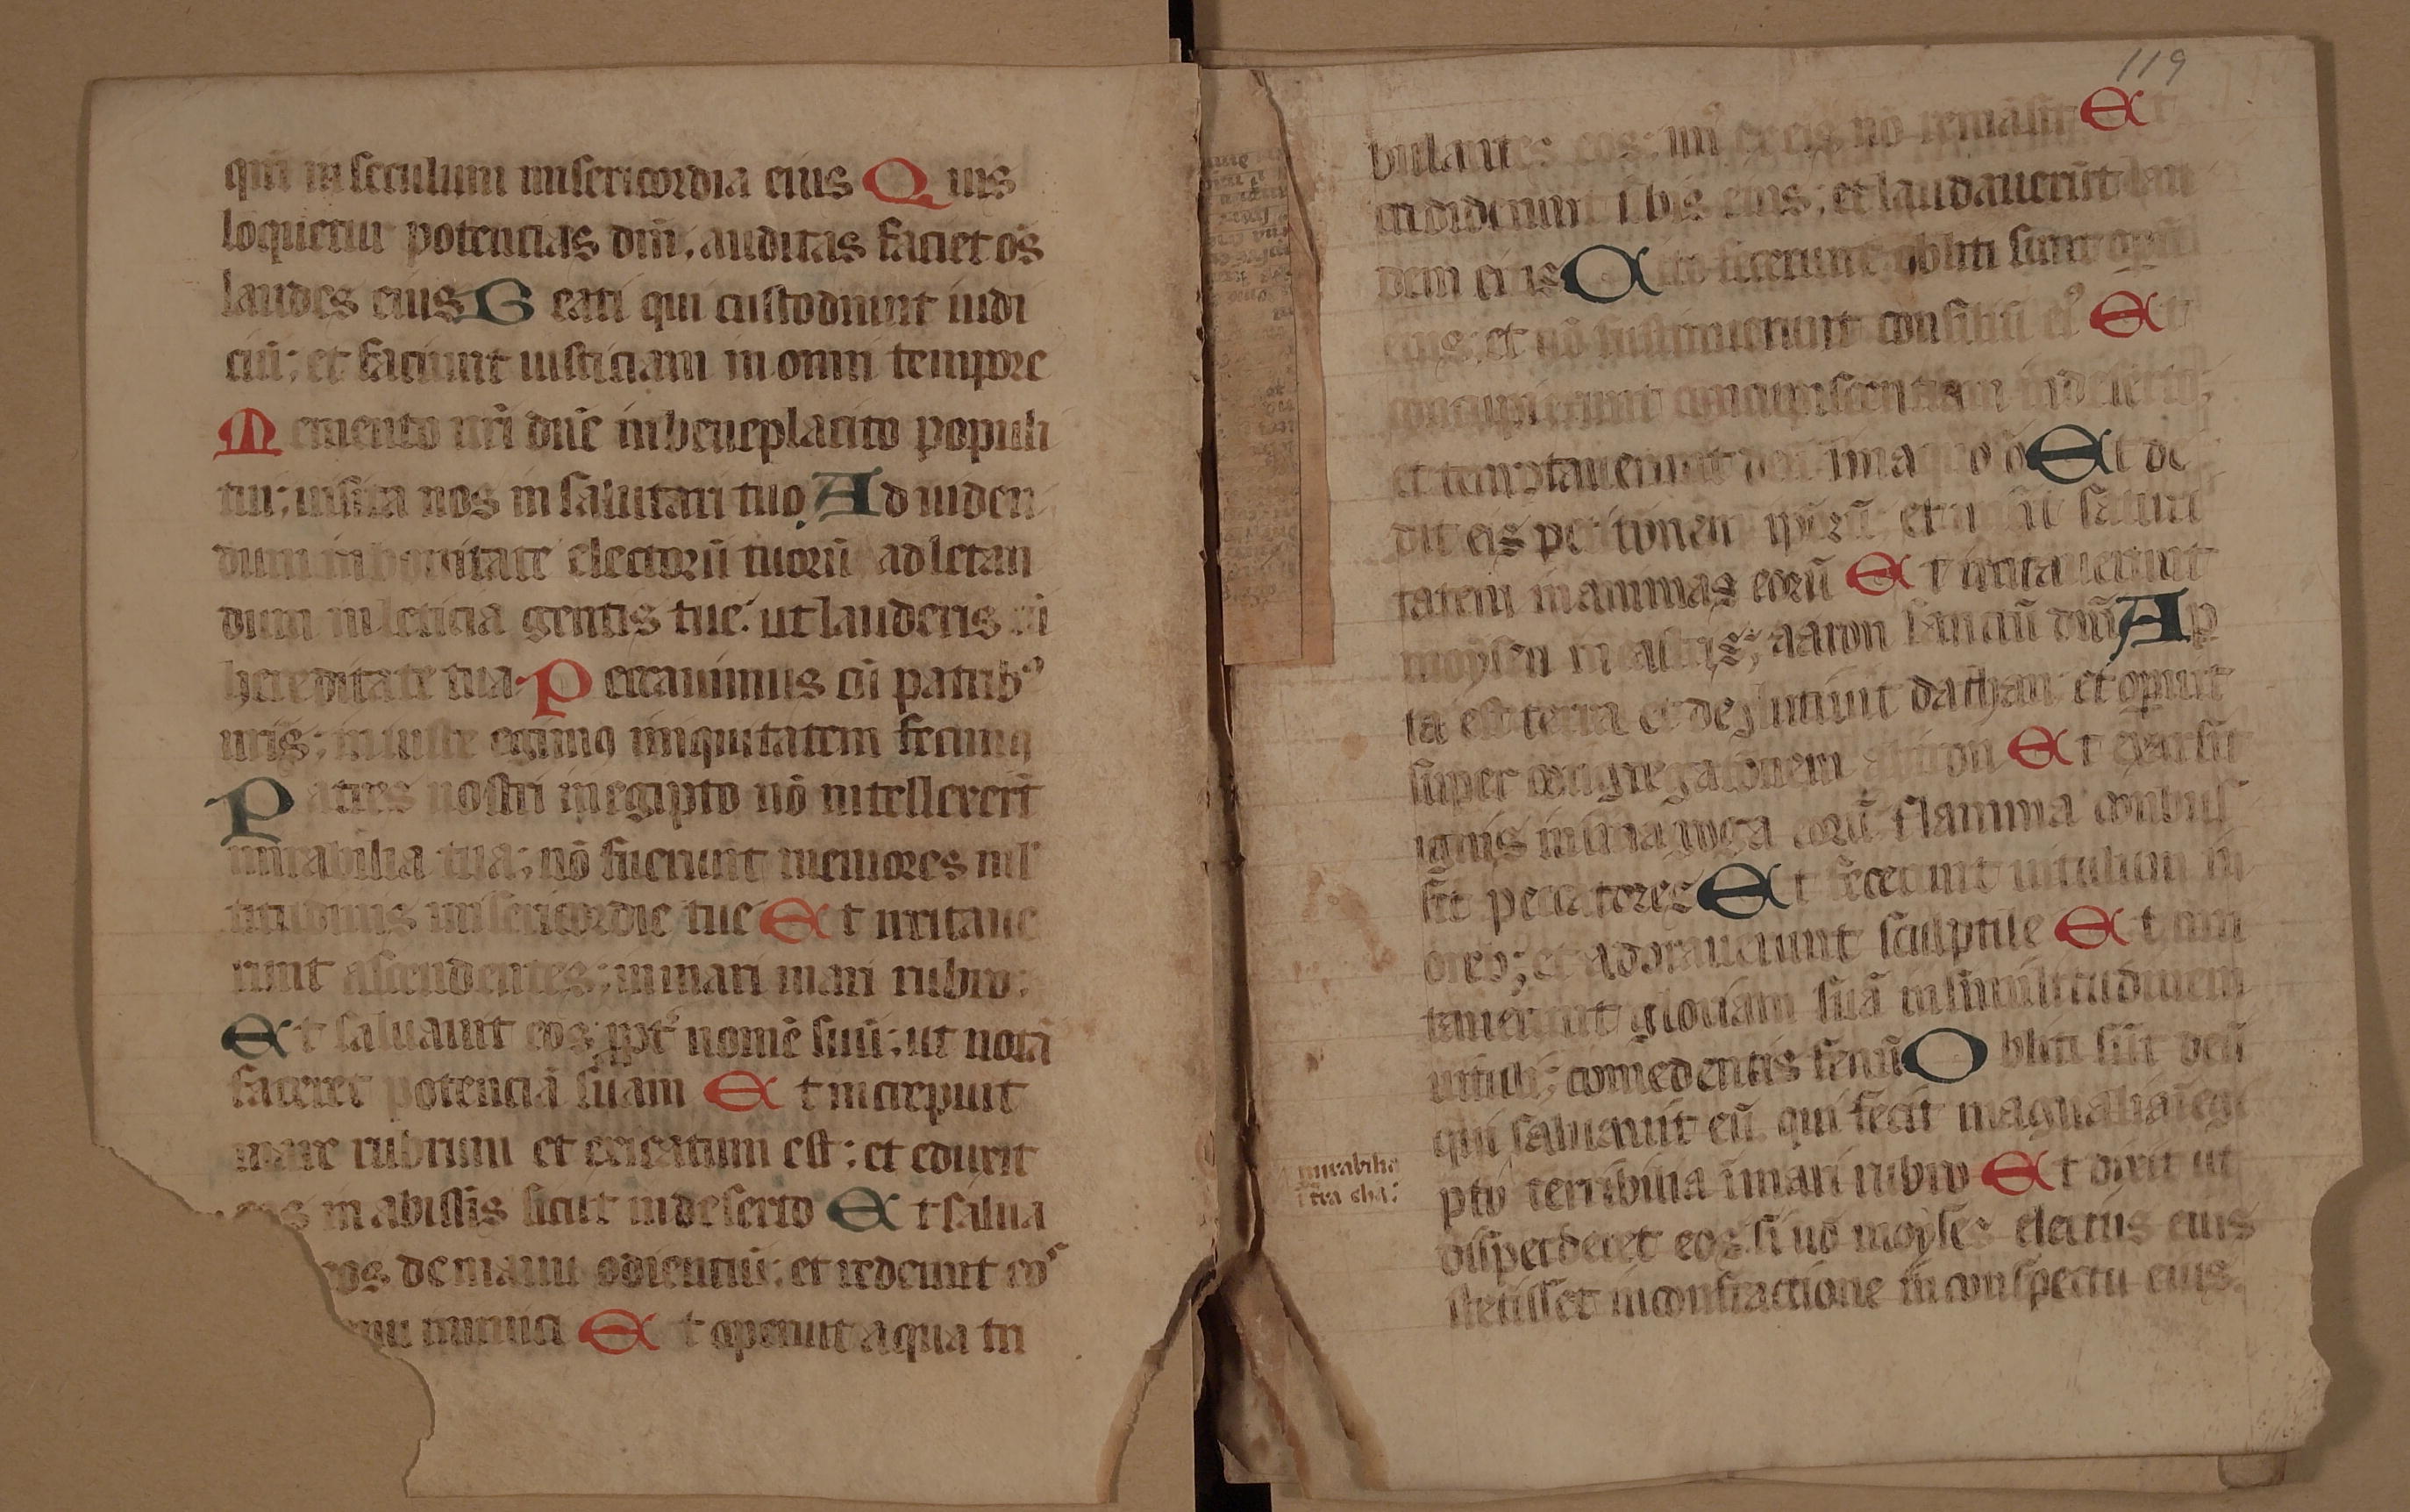 qm̄ in seculum misericordia eius Quis
loquetur potencias dm̄, auditas faciet om̄s
laudes eius Beati qui custodiunt iudi
ciū; et faciunt iusticiam in omni tempore
Memento nr̄i dn̄e in beneplacito populi
tui; uisita nos in salutari tuo. Ad uiden
dum in bonitate electorū tuorū ad letan
dum in leticia gentis tue. ut lauderis cū
hereditate tua. Peccauimus cū patrib⁹
nr̄is; iniuste egimꝰ iniquitatem fecimꝰ
Patres nostri in egipto nō intellexer̄t
mirabilia tua; nō fuerunt memores ml̄
titudinis misericordie tue Et irritaue
runt ascendentes; in mari mari rubro;
Et saluauit eos ꝓpt̄ nomē suū; ut notā
faceret potenciā suam Et increpuit
mare rubrum et exicatum est; et eduxit
eos in abissis sicut in deserto Et salua
eos de manu odienciū; et redemit eos
nu inimici Et operuit aqua tri
119
bulantes eos; un⁹ ex eis nō remāsit Et
crediderunt ūbis eius; et laudauerūt lau
dem eius Cito fecerunt obliti sunt operū
eius; et nō sustinuerunt consiliū ei⁹ Et
concupierunt concupiscentiam in deserto;
et temptauerunt in inaquoso Et de
dit eis peticionem ipōrū et misit saturi
tatem in animas eorū Et irritauerunt
moysen in castris; aaron sanctū dn̄i Ap
ta est terra et deglutiuit dathan et operuit
super congregationem abiron Et exarsit
ignis in sinagoga eorū flamma combus
sit peccatores Et fecerunt uitulum in
oreb; et adorauerunt sculptile Et om
tauerunt gloriam suā in similitudinem
uituli; comedentis fenū Obliti sūt deū
qui saluauit eū, qui fecit magnalia ī egi
mirabilia
ī tr̄a cha;
pto terribilia ī mari rubro Et dixit ut
disperderet eos si nō moyses electus eius
stetisset in confractione in conspectu eius.